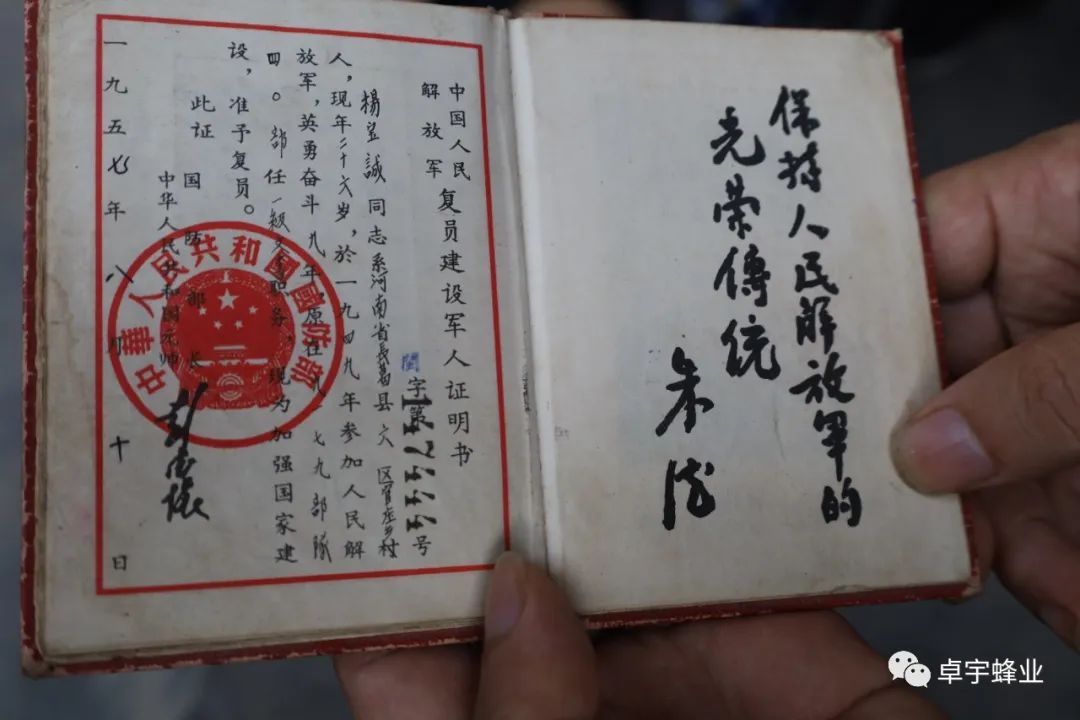 保持人民解放軍的
光荣傳统
朱德
中国人民
解放军
复员建设军人证明书
閩字第号
楊誠同志系河南省長葛县六区官庄乡村
人，现年二十六岁，於一九四九年参加人民解
放军，英勇奋斗九年原在八一七九部隊
四〇部任一级职务，现为加强国家建
设，准予复员。
此证
国防部长
中华人民共和国元帅
彭德懷
一九五七年八月十日
中華人民共和國國防部
卓宇蜂业